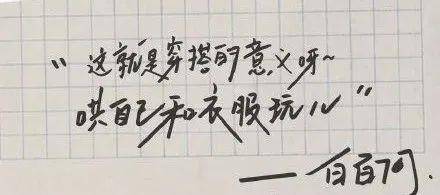 “这就是穿搭的意义呀~
哄自己和衣服玩儿”
——白百何.